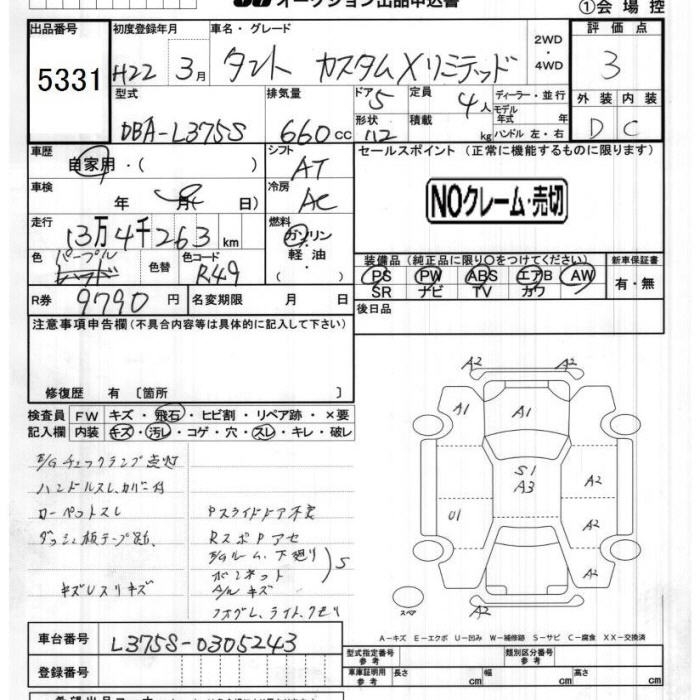 オークション出品申込書
①会場控
出品番号
5331
初度登録年月
H22 3月
車名・グレード
タント カスタムXリミテッド
2WD
・
4WD
評価点
3
型式
DBA-L375S
排気量
660cc
ドア 5
形状 112
定員 4人
積載 kg
ディーラー・並行
モデル年式 年
ハンドル 左・右
外装 内装
D C
車歴
自家用・( )
シフト
AT
セールスポイント (正常に機能するものに限ります)
NOクレーム・売切
車検
年 月( 日)
冷房
AC
走行
13万4千263km
燃料
ガソリン
・
軽油
色
パープル
色替
色コード
R49
装備品(純正品に限り〇をつけてください)
PS PW ABS エアB AW
SR ナビ TV カワ
新車保証書
有・無
R券 9790円
名変期限 月 日
後日品
注意事項申告欄(不具合内容等は具体的に記入して下さい)
修復歴 有 〔箇所 〕
検査員記入欄
FW キズ・飛石・ヒビ割・リペア跡・×要
内装 キズ・汚レ・コゲ・穴・スレ・キレ・破レ
E/Gチェックランプ点灯
ハンドルスレ、カバー付
ローペットスレ
ダッシュ板テープ跡、
キズUスリキズ
Pスライドドア不良
RスポPアセ
E/Gルーム、下廻り
ボンネット
A/Wキズ
フォグレ、ライト、クモリ
S
A2 A2
A1 A1
S1
A3
A2
U1
A2
A2
A2
スペア
A-キズ E-エクボ U-凹み W-補修跡 S-サビ C-腐食 XX-交換済
車台番号 L375S-0305243
登録番号
型式指定番号 参考
類別区分番号 参考
車庫証明用 参考
長さ cm
幅 cm
高さ cm